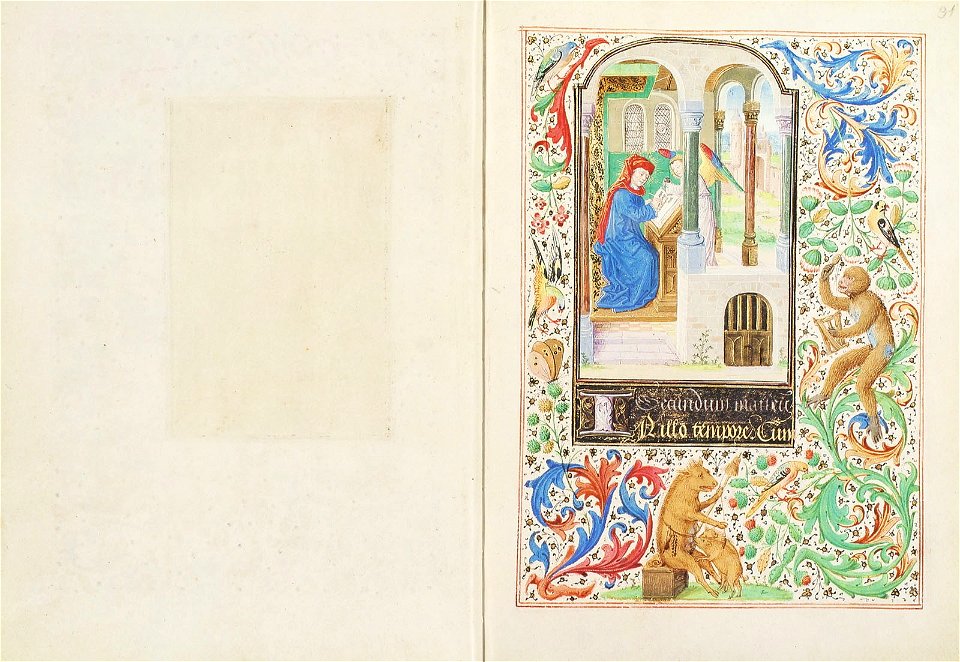 31
Secundum matheu
In illo tempore Cum